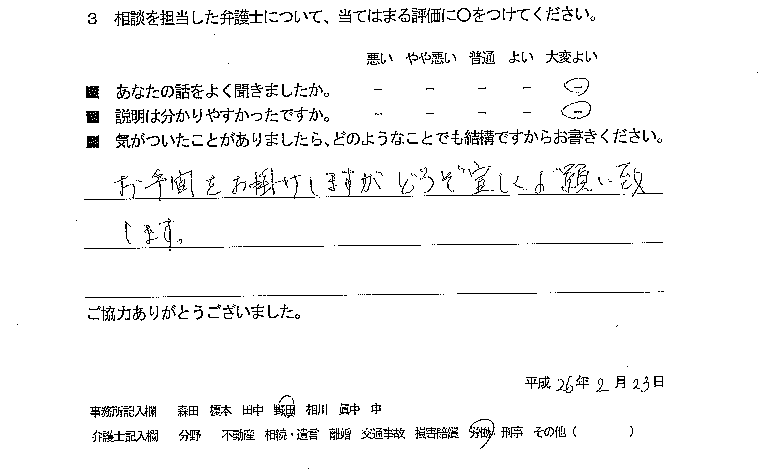 3 相談を担当した弁護士について、当てはまる評価に○をつけてください。
悪い やや悪い 普通 よい 大変よい
■ あなたの話をよく聞きましたか。 － － － － －
■ 説明は分かりやすかったですか。 － － － － －
■ 気がついたことがありましたら、どのようなことでも結構ですからお書きください。
お手間をお掛けしますがどうぞ宜しくお願い致
します。
ご協力ありがとうございました。
平成 26年 2月 23日
事務所記入欄 森田 榎本 田中 相川 眞中 中
弁護士記入欄 分野 不動産 相続・遺言 離婚 交通事故 損害賠償 労働 刑事 その他（ ）